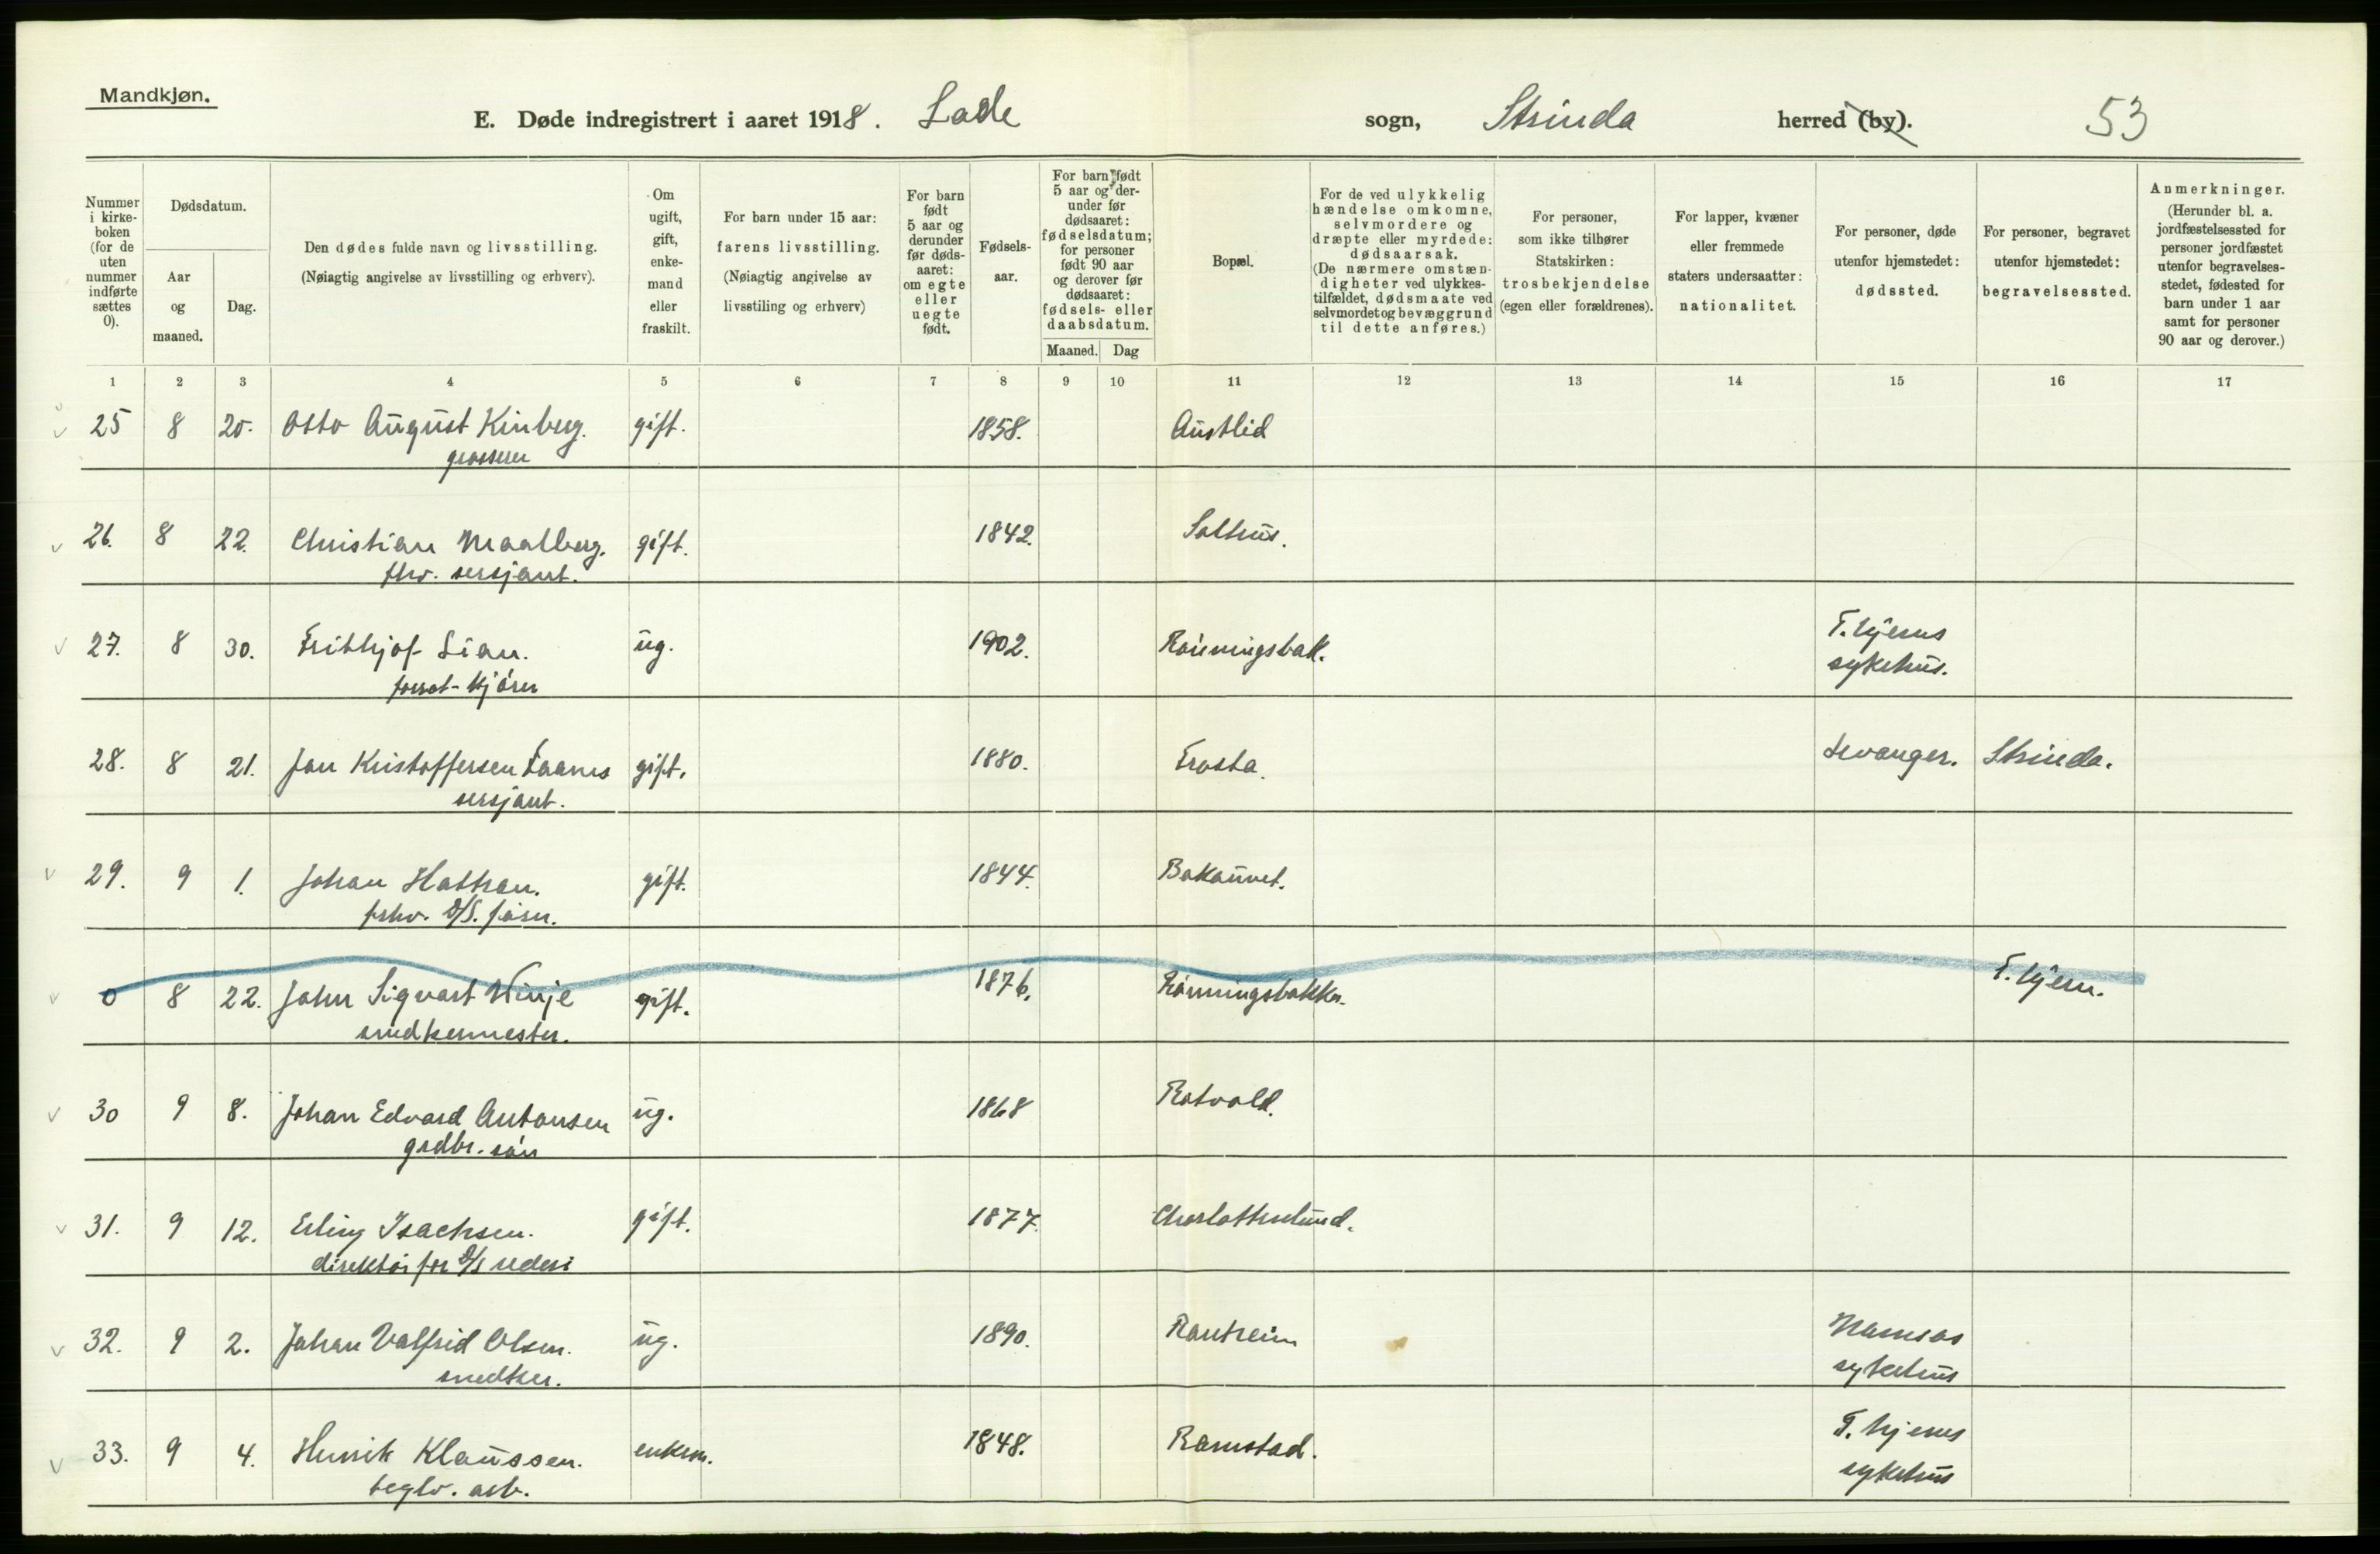 Mandkjøn.
E. Døde indregistrert i aaret 1918. Lade sogn, Strinda herred (by). 53
Nummer i kirke-boken (for de uten nummer indførte sættes 0).
Dødsdatum.
Aar og maaned.
Dag.
Den dødes fulde navn og livsstilling.
(Nøiagtig angivelse av livsstilling og erhverv).
Om ugift, gift, enke-mand eller fraskilt.
For barn under 15 aar: farens livsstilling.
(Nøiagtig angivelse av livsstiling og erhverv)
For barn født 5 aar og derunder før døds-aaret: om egte eller uegte født.
Fødsels-aar.
For barn født 5 aar og der-under før dødsaaret: fødselsdatum; for personer født 90 aar og derover før dødsaaret: fødsels- eller daabsdatum.
Maaned. Dag
Bopæl.
For de ved ulykkelig hændelse omkomne, selvmordere og dræpte eller myrdede: dødsaarsak.
(De nærmere omstæn-digheter ved ulykkes-tilfældet, dødsmaate ved selvmordet og bevæggrund til dette anføres.)
For personer, som ikke tilhører Statskirken: trosbekjendelse (egen eller forældrenes).
For lapper, kvæner eller fremmede staters undersaatter: nationalitet.
For personer, døde utenfor hjemstedet: dødssted.
For personer, begravet utenfor hjemstedet: begravelsessted.
Anmerkninger.
(Herunder bl. a. jordfæstelsessted for personer jordfæstet utenfor begravelses-stedet, fødested for barn under 1 aar samt for personer 90 aar og derover.)
1 2 3 4 5 6 7 8 9 10 11 12 13 14 15 16 17
25 8 20. Otto August Kinberg. gift. 1858. Austlid
grosserer
26. 8 22. Christian Maalberg. gift. 1842. Solhus.
fhv. sersjant.
27. 8 30. Frithjof Lian. ug. 1902. Rønningsbak. T.hjems
forret-kjører sykehus.
28. 8 21. Jon Kristoffersen Faanes gift. 1880. Frosta. Levanger. Strinda.
sersjant.
29. 9 1. Johan Hattran. gift. 1844. Bakaunet.
fhv. D/S. fører.
0 8 22. John Sigvart Vinje gift. 1876. Rønningsbakken. T.hjem.
snedkermester.
30 9 8. Johan Edvard Antonsen ug. 1868 Rotvold.
grdbr. søn
31. 9 12. Erling Isachsen. gift. 1877. Charlottenlund.
direktør for D/S rederi
32. 9 2. Johan Valfrid Olsen. ug. 1890. Ranheim Namsos
snedker. sykehus
33. 9 4. Henrik Klaussen. enkem. 1848. Ramstad. T.hjems
teglv. arb. sykehus